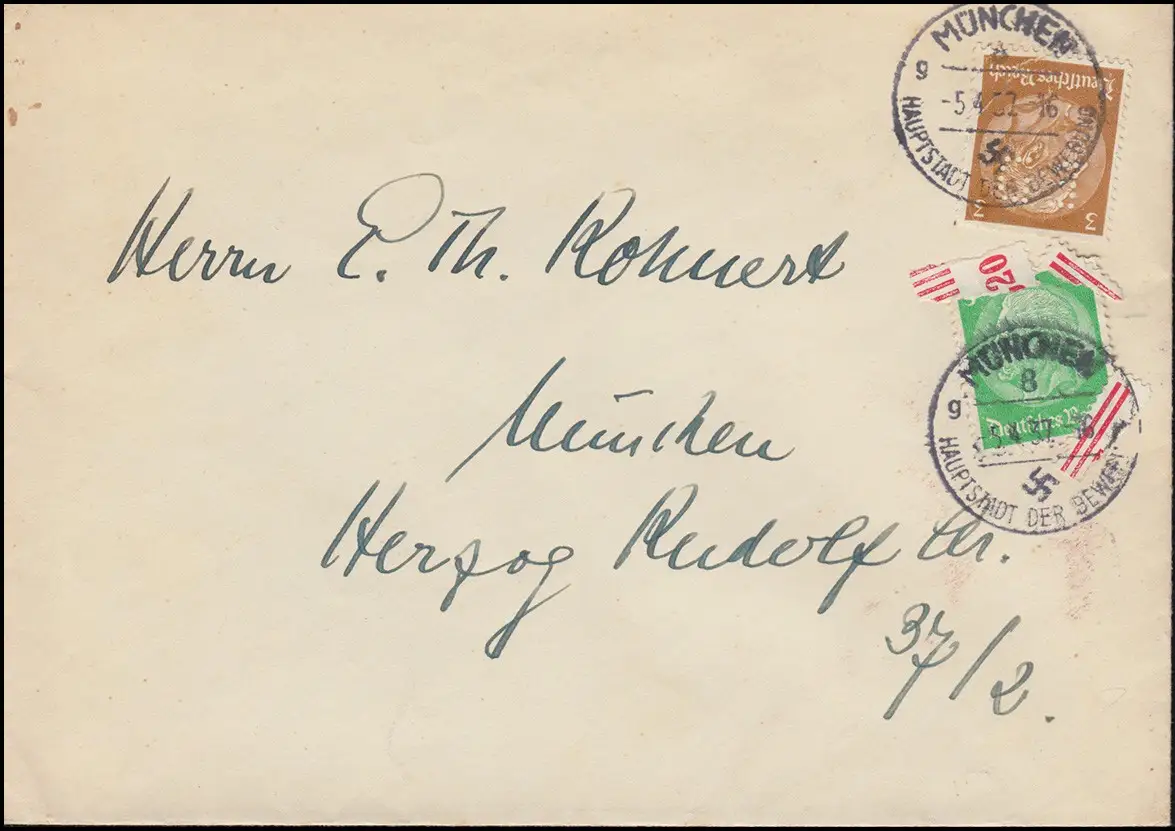 MÜNCHEN
g
-5.4.37.-16
HAUPTSTADT DER BEWEGUNG
Deutsches Reich
3 3
Herrn E. Th. Kohnert
20
MÜNCHEN
8
g
HAUPTSTADT DER BEWEG
Deutsches
München
Herzog Rudolf Str.
37/2.